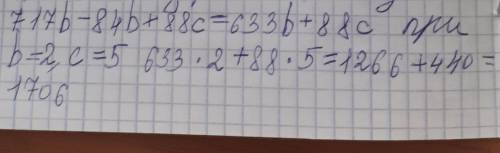 717b-84b+88c=633b+88c при
b=2, c=5 633·2+88·5=1266+440=
1706